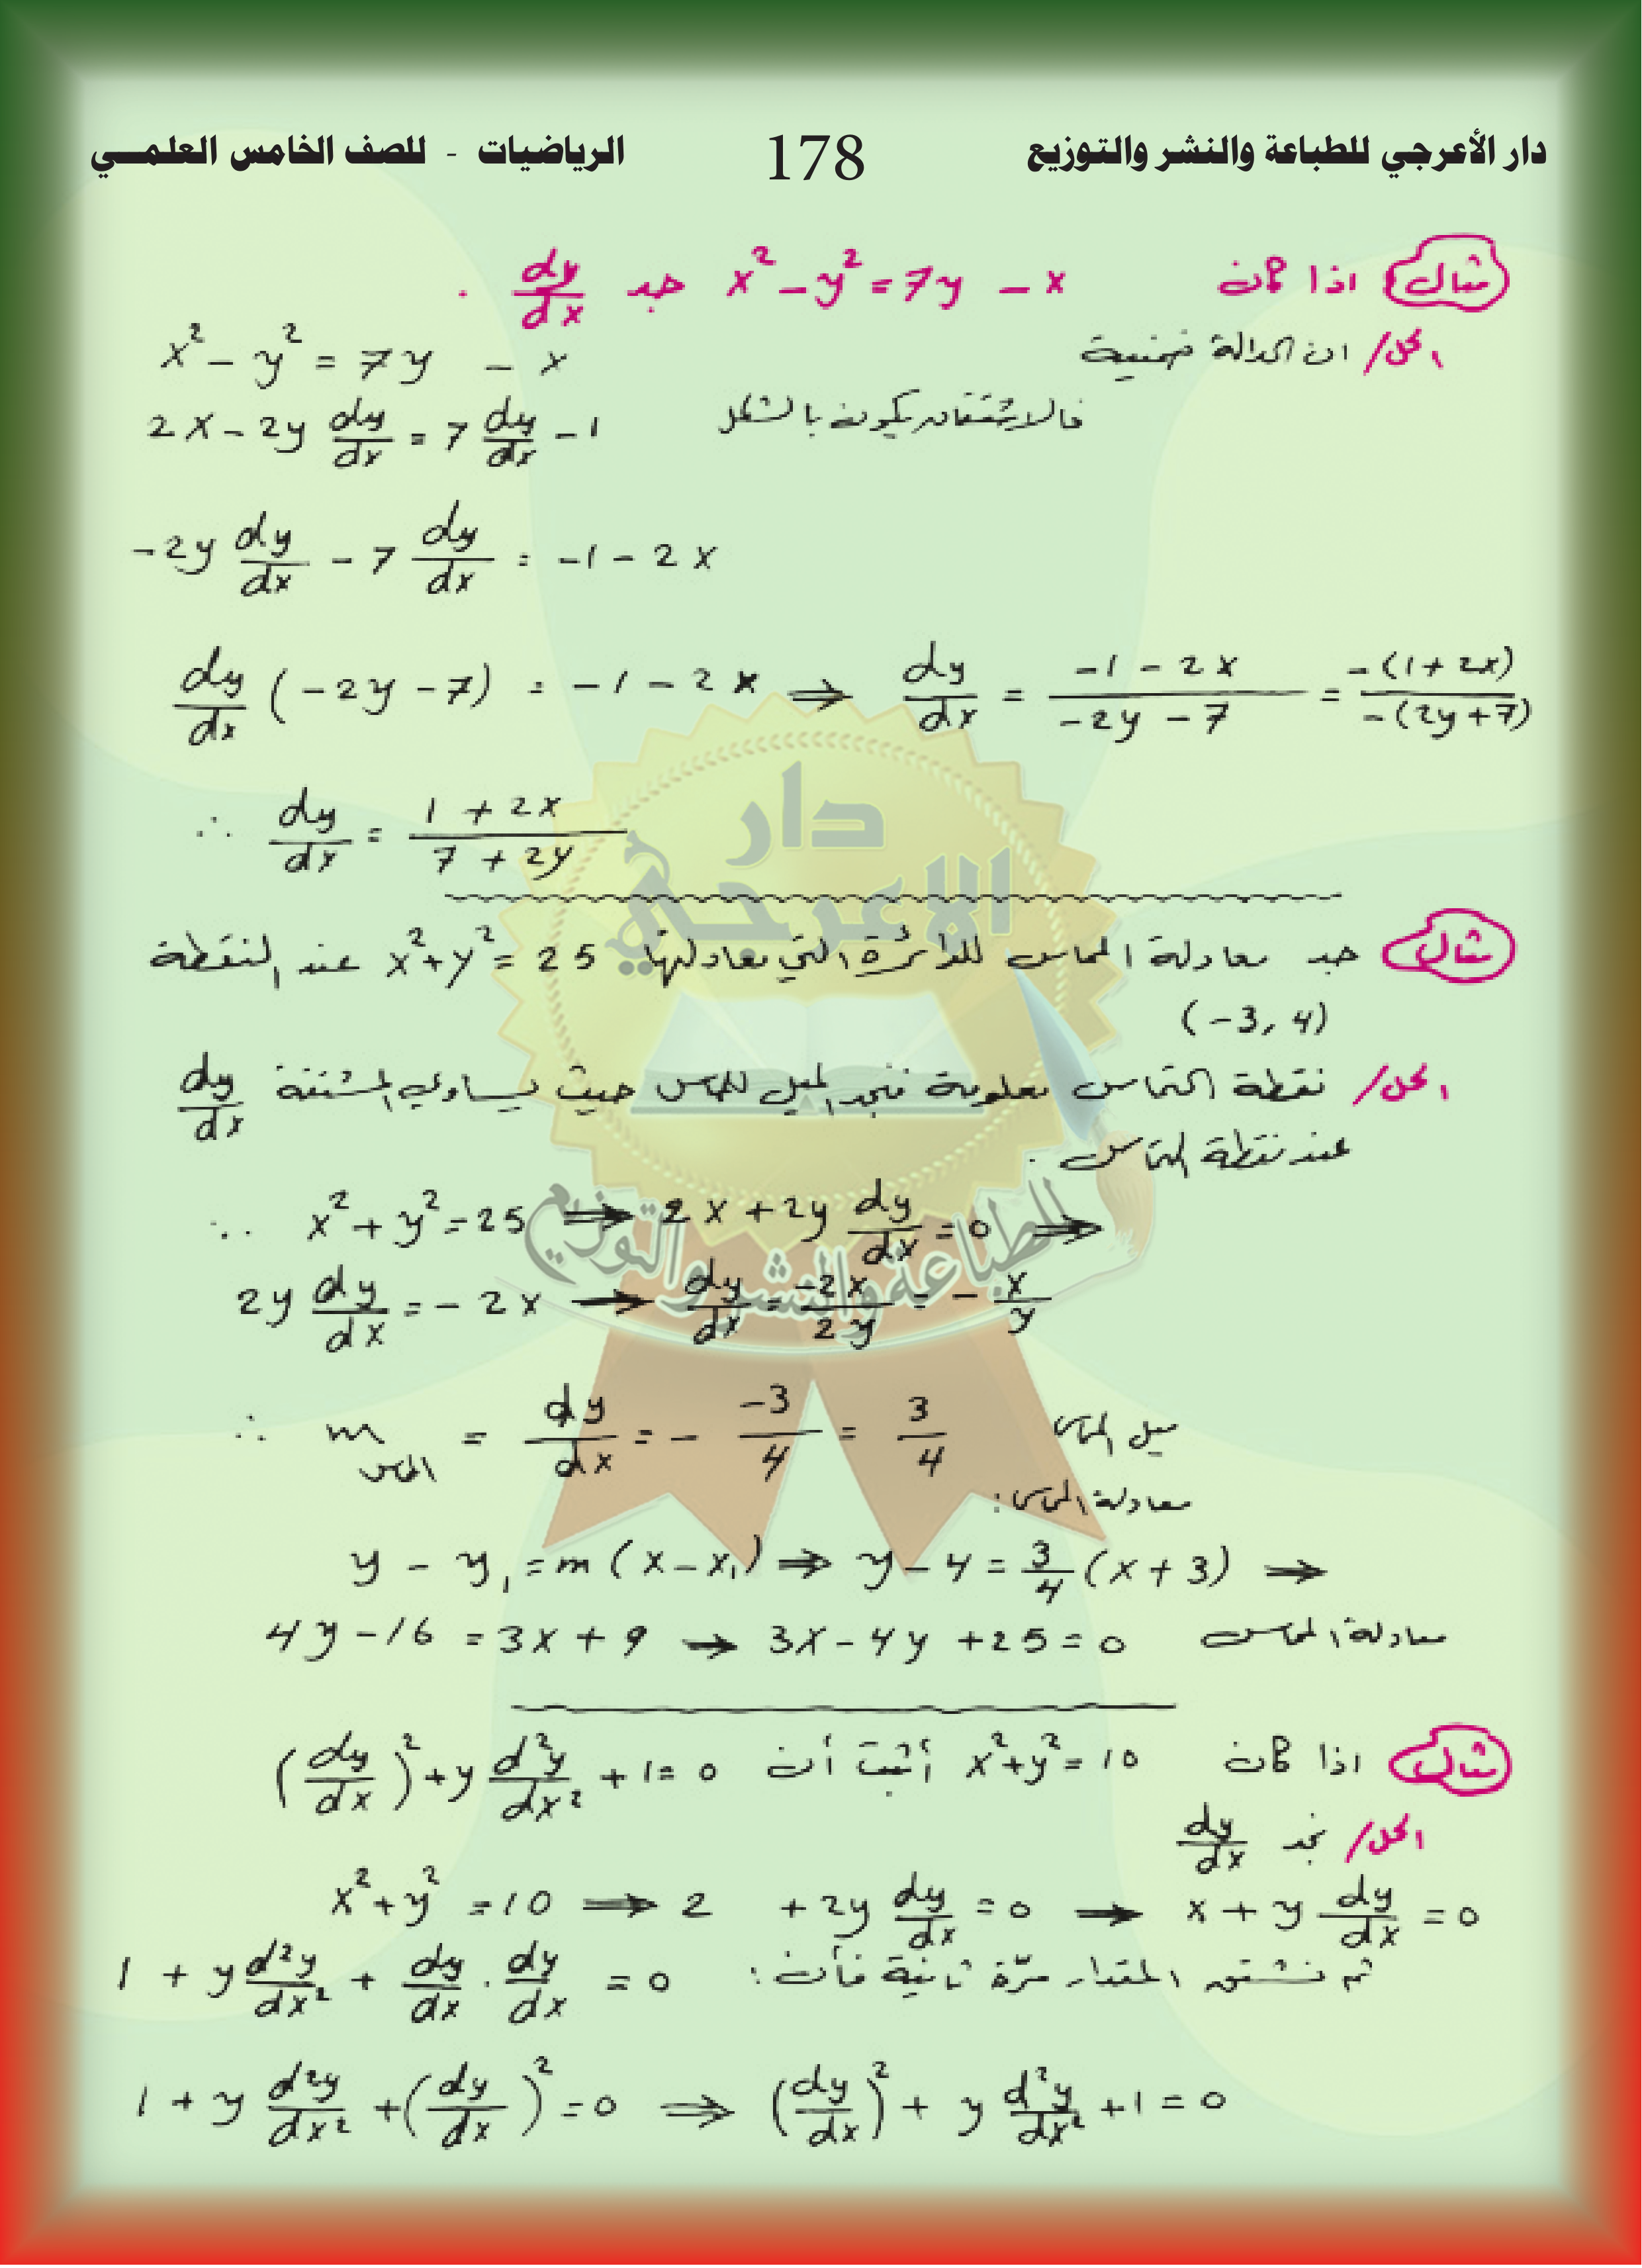 دار الأعرجي للطباعة والنشر والتوزيع 178 الرياضيات - للصف الخامس العلمي
مثال اذا كان x² - y² = 7y - x جد dy/dx .
الحل/ ان الدالة ضمنية x² - y² = 7y - x
فالاشتقاق يكون بالشكل 2x - 2y dy/dx = 7 dy/dx - 1
-2y dy/dx - 7 dy/dx = -1 - 2x
dy/dx (-2y - 7) = -1 - 2x ⇒ dy/dx = (-1 - 2x)/(-2y - 7) = -(1 + 2x)/-(2y + 7)
∴ dy/dx = (1 + 2x)/(7 + 2y)
دار
الاعرجي
للطباعة والنشر والتوزيع
مثال جد معادلة المماس للدائرة التي معادلتها x² + y² = 25 عند النقطة
(-3, 4)
الحل/ نقطة التماس معلومة فنجد الميل للمماس حيث يساوي المشتقة dy/dx
عند نقطة التماس .
∵ x² + y² = 25 ⇒ 2x + 2y dy/dx = 0 ⇒
2y dy/dx = -2x → dy/dx = -2x/2y = - x/y
∴ m المماس = dy/dx = - -3/4 = 3/4 ميل المماس
معادلة المماس :
y - y₁ = m (x - x₁) ⇒ y - 4 = 3/4 (x + 3) ⇒
4y - 16 = 3x + 9 → 3x - 4y + 25 = 0 معادلة المماس
مثال اذا كان x² + y² = 10 أثبت أن (dy/dx)² + y d²y/dx² + 1 = 0
الحل/ نجد dy/dx
x² + y² = 10 ⇒ 2 + 2y dy/dx = 0 → x + y dy/dx = 0
ثم نشتق المقدار مرّة ثانية فأن : 1 + y d²y/dx² + dy/dx . dy/dx = 0
1 + y d²y/dx² + (dy/dx)² = 0 ⇒ (dy/dx)² + y d²y/dx² + 1 = 0